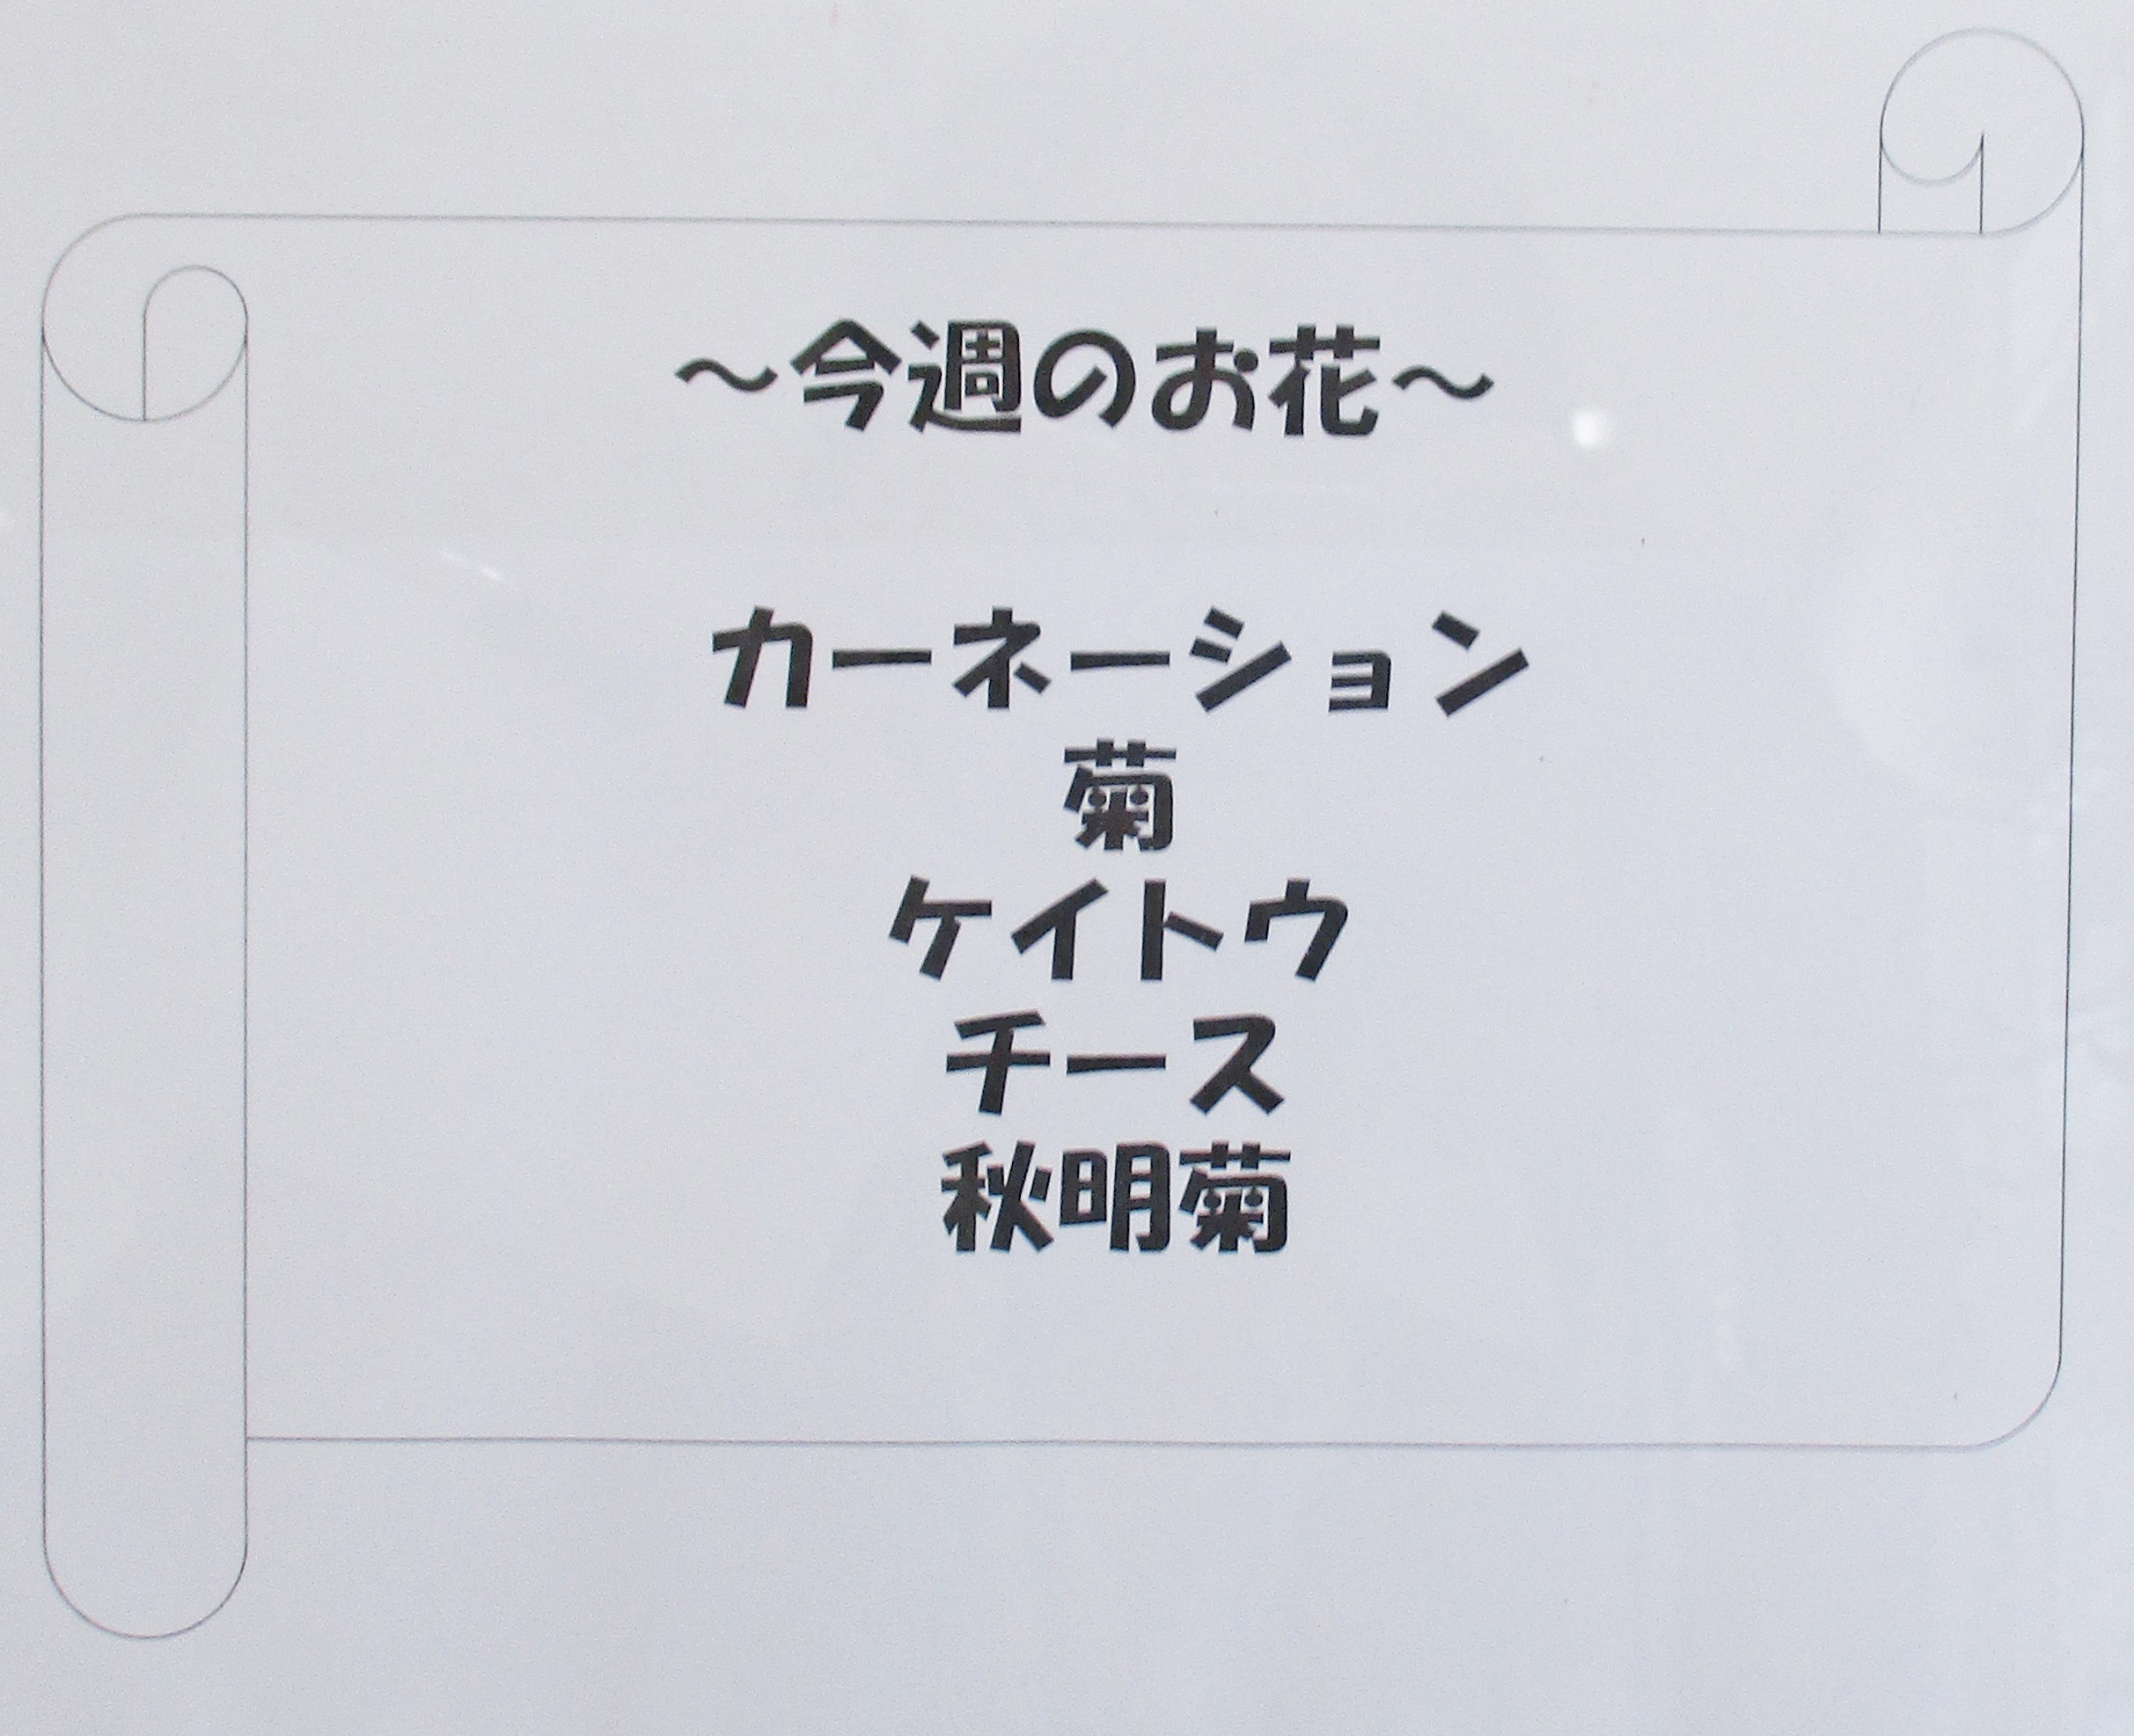 ～今週のお花～
カーネーション
菊
ケイトウ
チース
秋明菊